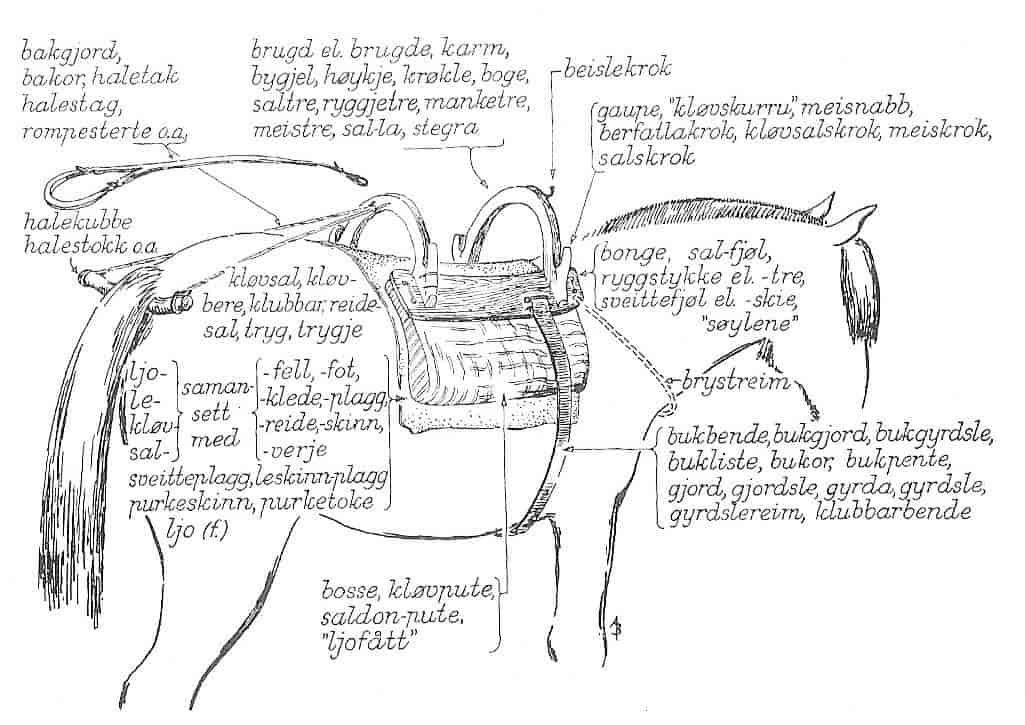 bakgjord,
bakor, haletak
halestag,
rompesterte o.a.
brugd el. brugde, karm,
bygjel, høykje, krøkle, boge,
saltre, ryggjetre, manketre,
meistre, sal-la, stegra
beislekrok
gaupe, "kløvskurru", meisnabb,
berfatlakrok, kløvsalskrok, meiskrok,
salskrok
halekubbe
halestokk o.a.
kløvsal, kløv-
bere, klubbar, reide-
sal, tryg, trygje
bonge, sal-fjøl,
ryggstykke el. -tre,
sveittefjøl el. -skie,
"søylene"
brystreim
ljo-
le-
kløv-
sal-
saman-
sett
med
-fell, -fot,
-klede, -plagg
-reide, -skinn,
-verje
sveitteplagg, leskinn-plagg
purkeskinn, purketoke
ljo (f.)
bukbende, bukgjord, bukgyrdsle,
bukliste, bukor, bukpente,
gjord, gjordsle, gyrda, gyrdsle,
gyrdslereim, klubbarbende
bosse, kløvpute,
saldon-pute,
"ljofått"